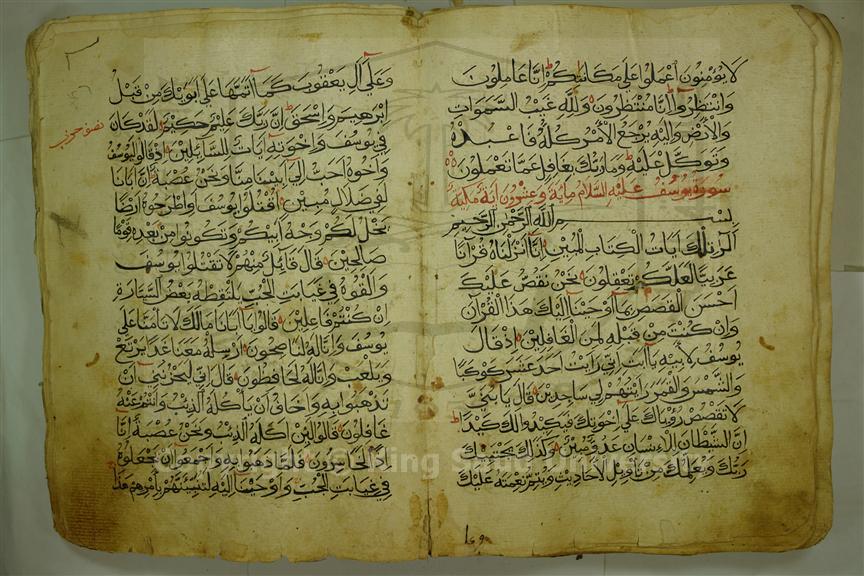 لا يؤمنون اعملوا على مكانتكم انا عاملون
وانتظروا انا منتظرون ولله غيب السموات
والارض واليه يرجع الامر كله فاعبده
وتوكل عليه وما ربك بغافل عما تعملون
سورة يوسف عليه السلام ماية وعشرون اية مكية
بسم الله الرحمن الرحيم
الر تلك ايات الكتاب المبين انا انزلناه قرآنا
عربيا لعلكم تعقلون نحن نقص عليك
احسن القصص بما اوحينا اليك هذا القرآن
وان كنت من قبله لمن الغافلين اذ قال
يوسف لابيه يا ابت اني رايت احد عشر كوكبا
والشمس والقمر رايتهم لي ساجدين قال يا بني
لا تقصص رؤياك على اخوتك فيكيدوا لك كيدا
ان الشيطان للانسان عدو مبين وكذلك يجتبيك
ربك ويعلمك من تأويل الاحاديث ويتم نعمته عليك
وعلى آل يعقوب كما اتمها على ابويك من قبل
ابرهيم واسحق ان ربك عليم حكيم لقد كان
نصف حزب
في يوسف واخوته ايات للسائلين اذ قالوا ليوسف
واخوه احب الى ابينا منا ونحن عصبة ان ابانا
لفي ضلال مبين اقتلوا يوسف او اطرحوه ارضا
يخل لكم وجه ابيكم وتكونوا من بعده قوما
صالحين قال قائل منهم لا تقتلوا يوسف
والقوه في غيابت الجب يلتقطه بعض السيارة
ان كنتم فاعلين قالوا يا ابانا مالك لا تامنا على
يوسف وانا له لناصحون ارسله معنا غدا يرتع
ويلعب وانا له لحافظون قال اني ليحزنني ان
تذهبوا به واخاف ان ياكله الذيب وانتم عنه
غافلون قالوا لئن اكله الذيب ونحن عصبة انا
اذا لخاسرون فلما ذهبوا به واجمعوا ان يجعلوه
في غيابت الجب واوحينا اليه لتنبئنهم بامرهم هذا